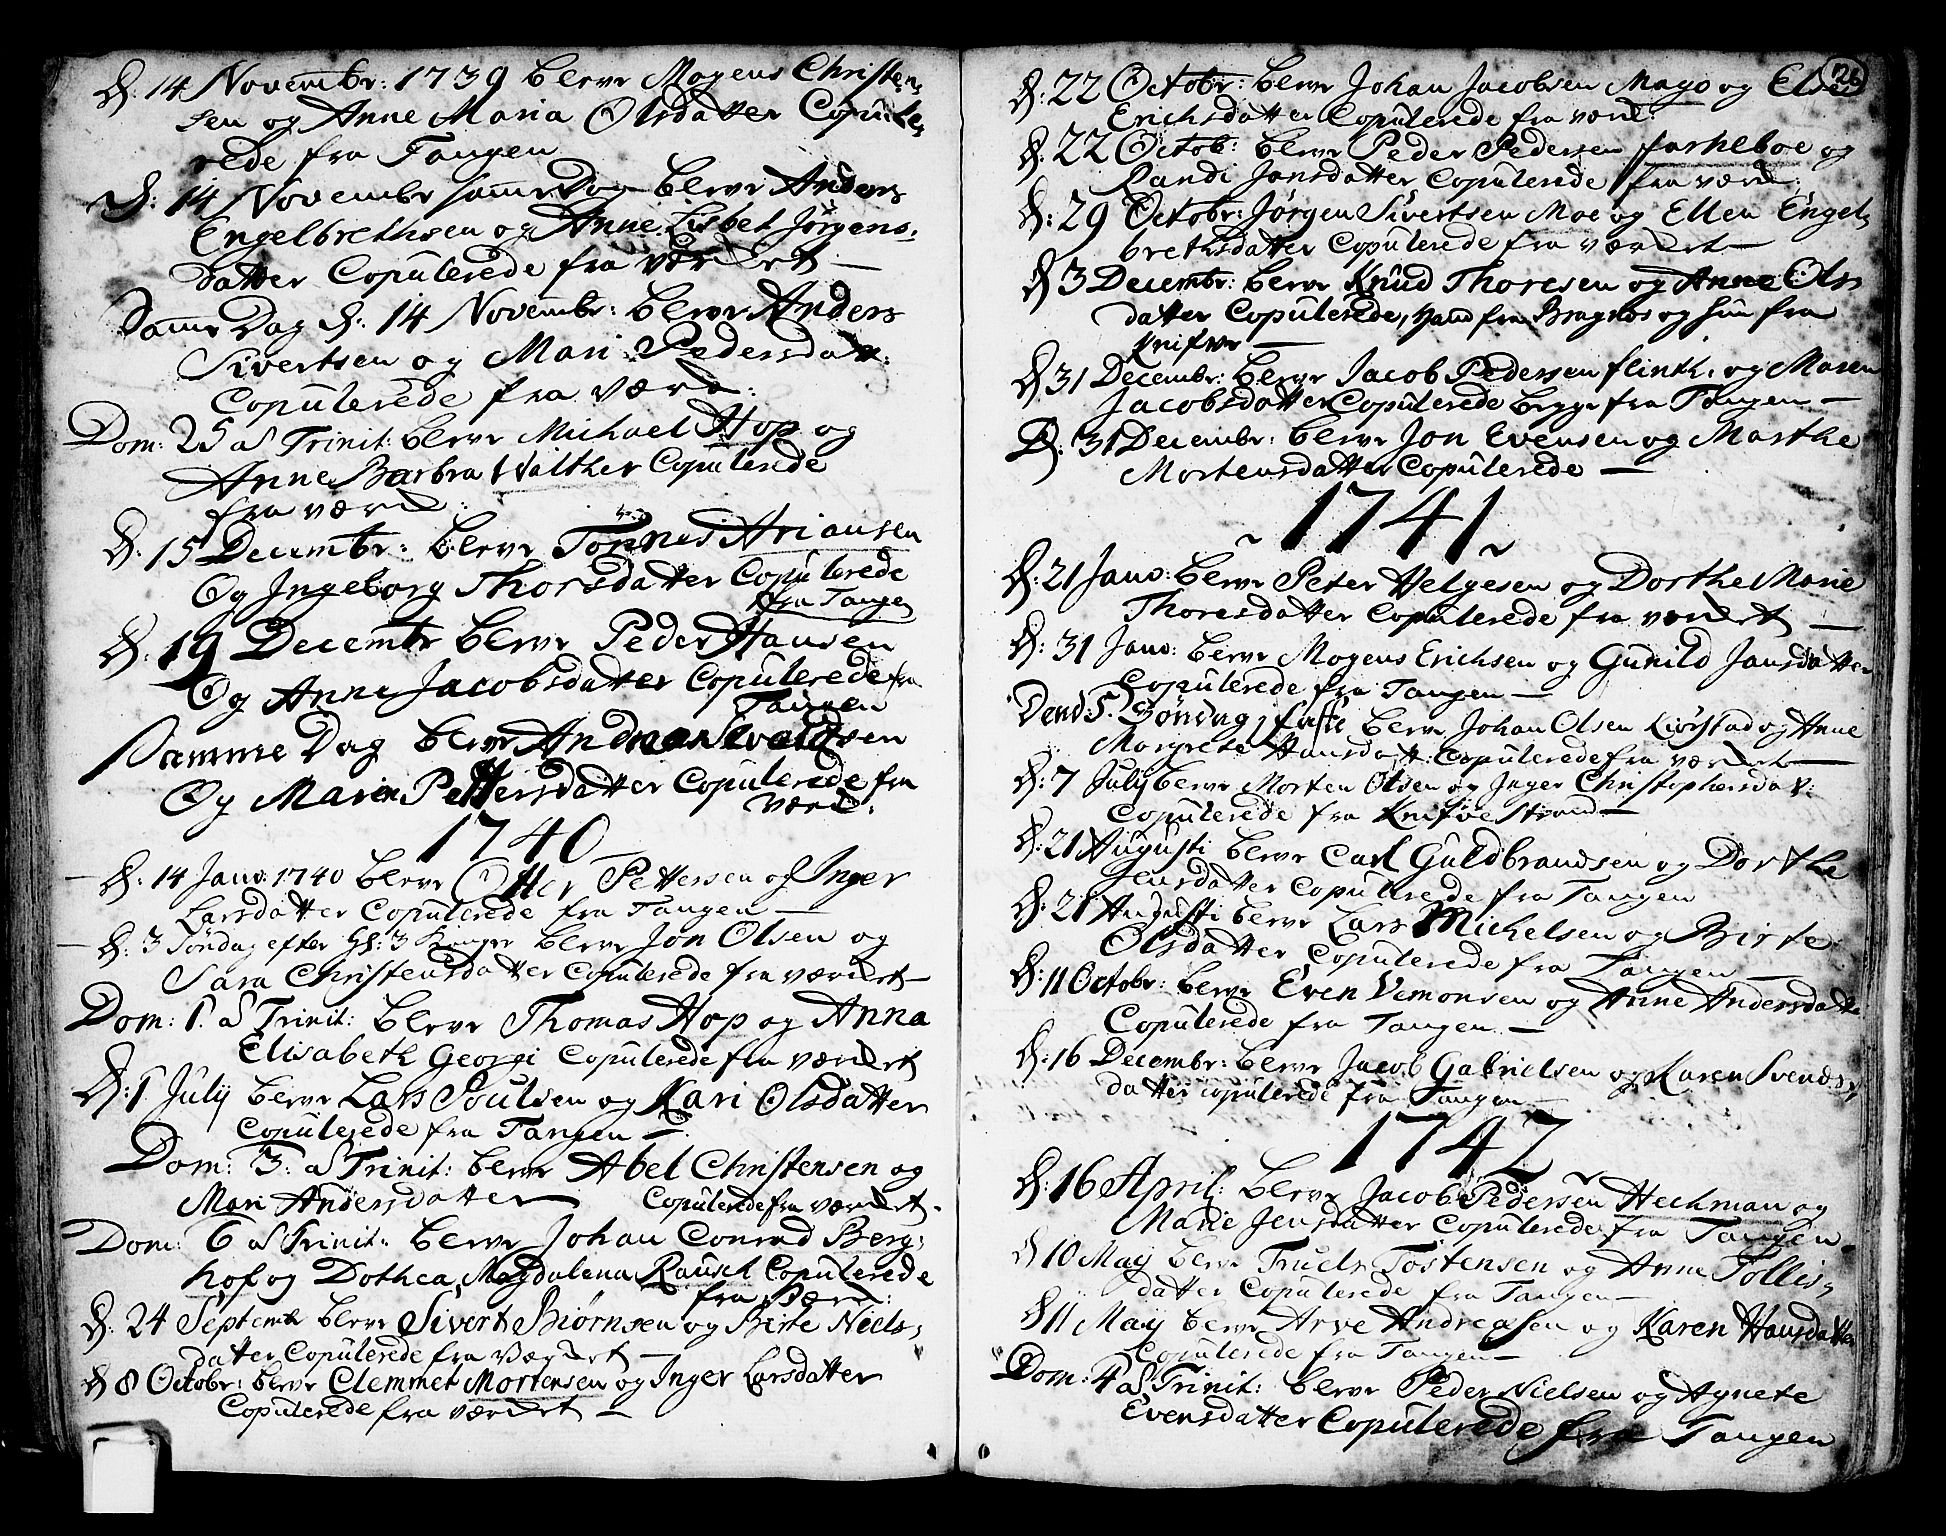 D: 14 Novembr: 1739 bleve Mogens Christen-
sen og Anne Maria Olsdatter Copule-
rede fra Tangen
D: 14 Novembr samme Dag bleve Anders
Engelbrethsen og Anne Lisbet Jørgens-
datter Copulerede fra værcket
Samme Dag D: 14 Novembr: bleve Anders
Sivertsen og Mari Pedersdatt:
Copulerede fra værck:
Dom: 25 a Trinit: bleve Michael Hop og
Anne Barbra Walther Copulerede
fra værck:
D: 15 Decembr: bleve Tönnes Ariansen
Og Ingeborg Thorsdatter Copulerede
fra Tangen
D: 19 Decembr bleve Peder Hansen
Og Anne Jacobsdatter Copulerede fra
Tangen
Samme Dag bleve Andreas
Og Maren Pettersdatter Copulerede fra
værck:
1740
D: 14 Janv: 1740 bleve Otter Pettersen og Inger
Larsdatter Copulerede fra Tangen
D: 3 Söndag efter Hl: 3 Konger bleve Jon Olsen og
Sara Christensdatter Copulerede fra værcket
Dom: 1. a Trinit: bleve Thomas Hop og Anna
Elisabeth Georgi Copulerede fra værcket
D: 1 July bleve Lars Poulsen og Kari Olsdatter
Copulerede fra Tangen
Dom: 3: a Trinit: bleve Abel Christensen og
Mari Andersdatter Copulerede fra værcket.
Dom: 6 a Trinit: bleve Johan Conrad Berg-
hof og Dothea Magdalena Rausch Copulerede
fra værck:
D: 24 Septembr bleve Sivert Biørnsen og Birte Niels-
datter Copulerede fra Værcket
D 8 Octobr: bleve Clemmet Mortensen og Inger Larsdatter
Copulerede fra værcket
26
D: 22 Octobr: bleve Johan Jacobsen Mago og Else
Erichsdatter Copulerede fra værck:
D: 22 Octob: bleve Peder Pedersen og
Randi Jonsdatter Copulerede fra værck:
D: 29 Octobr: Jørgen Sivertsen Moe og Ellen Engel-
brethsdatter Copulerede fra værcket
D 3 Decembr: bleve Knud Thoresen og Anne Ols
datter Copulerede, hand fra Bragnes og hun fra
Knifve
D 31 Decembr: bleve Jacob Pedersen flinth: og Maren
Jacobsdatter Copulerede begge fra Tangen
D: 31 Decembr: bleve Jon Evensen og Marthe
Mortensdatter Copulerede
1741
D: 21 Janv: bleve Peter Helgesen og Dorthe Marie
Thoresdatter Copulerede fra værcket
D: 31 Janv: bleve Mogens Erichsen og Gunild Jansdatter
Copulerede fra Tangen
Dend 5. Söndag i faste bleve Johan Olsen og Anne
Margrete Hansdatt: Copulerede fra værcket
D: 7 July bleve Morten Olsen og Inger Christophersdat:
Copulerede fra Knifve Strand
D: 21 Augusti bleve Carl Guldbrandsen og Dorthe
Jensdatter Copulerede fra Tangen
D: 21 Augusti bleve Lars Michelsen og Birte
Olsdatter Copulerede fra Tangen
D: 11 Octobr: bleve Even Vemonsen og Anne Andersdatter
Copulerede fra Tangen
D: 16 Decembr: bleve Jacob Gabrielsen og Karen Svends-
datter copulerede fra Tangen
1742
D: 16 April: bleve Jacob Pedersen Heckman og
Marie Jensdatter Copulerede fra Tangen
D 10 May bleve Truels Tostensen og Anne Tollis-
datter Copulerede fra Tangen
D 11 May bleve Arve Andreasen og Karen Hansdatter
Copulerede fra Tangen
Dom: 4 a Trinit: bleve Peder Nielsen og Agnete
Evensdatter Copulerede fra Tangen